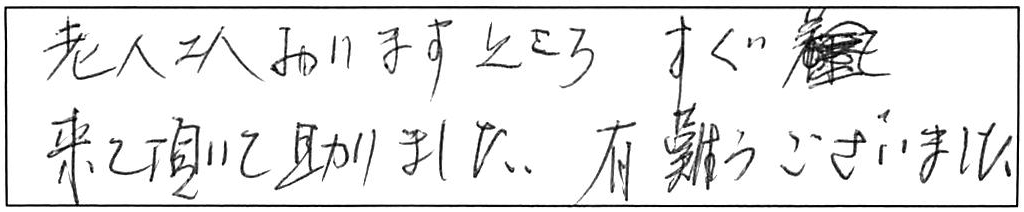 老人二人おりますところ すぐ
来て頂いて助かりました。有難うございました